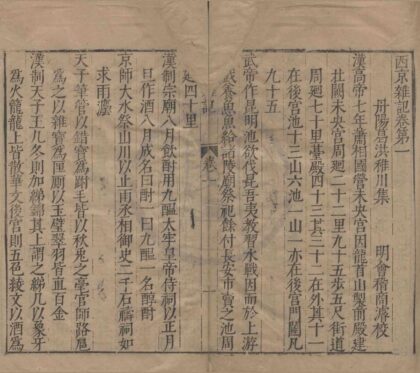 西京雜記卷第一
丹陽葛洪稚川集　明會稽商濬校
漢高帝七年蕭相國營未央宮因龍首山製前殿建
北闕未央宮周廻二十二里九十五步五尺街道
周廻七十里臺殿四十三其三十二在外其十一
在後宮池十三山六池一山一亦在後宮門闥凡
九十五
武帝作昆明池欲伐昆吾夷教習水戰因而於上游
戲養魚魚給諸陵廟祭祀餘付長安市賣之池周
記　卷一
廻四十里
漢制宗廟八月飲酎用九醞太牢皇帝侍祠以正月
旦作酒八月成名曰酎一曰九醞一名醇酎
京師大水祭山川以止雨丞相御史二千石禱祠如
求雨法
天子筆管以錯寶為跗毛皆以秋兔之毫官師路扈
為之以雜寶為匣廁以玉璧翠羽皆直百金
漢制天子玉几冬則加綈錦其上謂之綈几以象牙
為火籠籠上皆散華文後宮則五色綾文以酒為